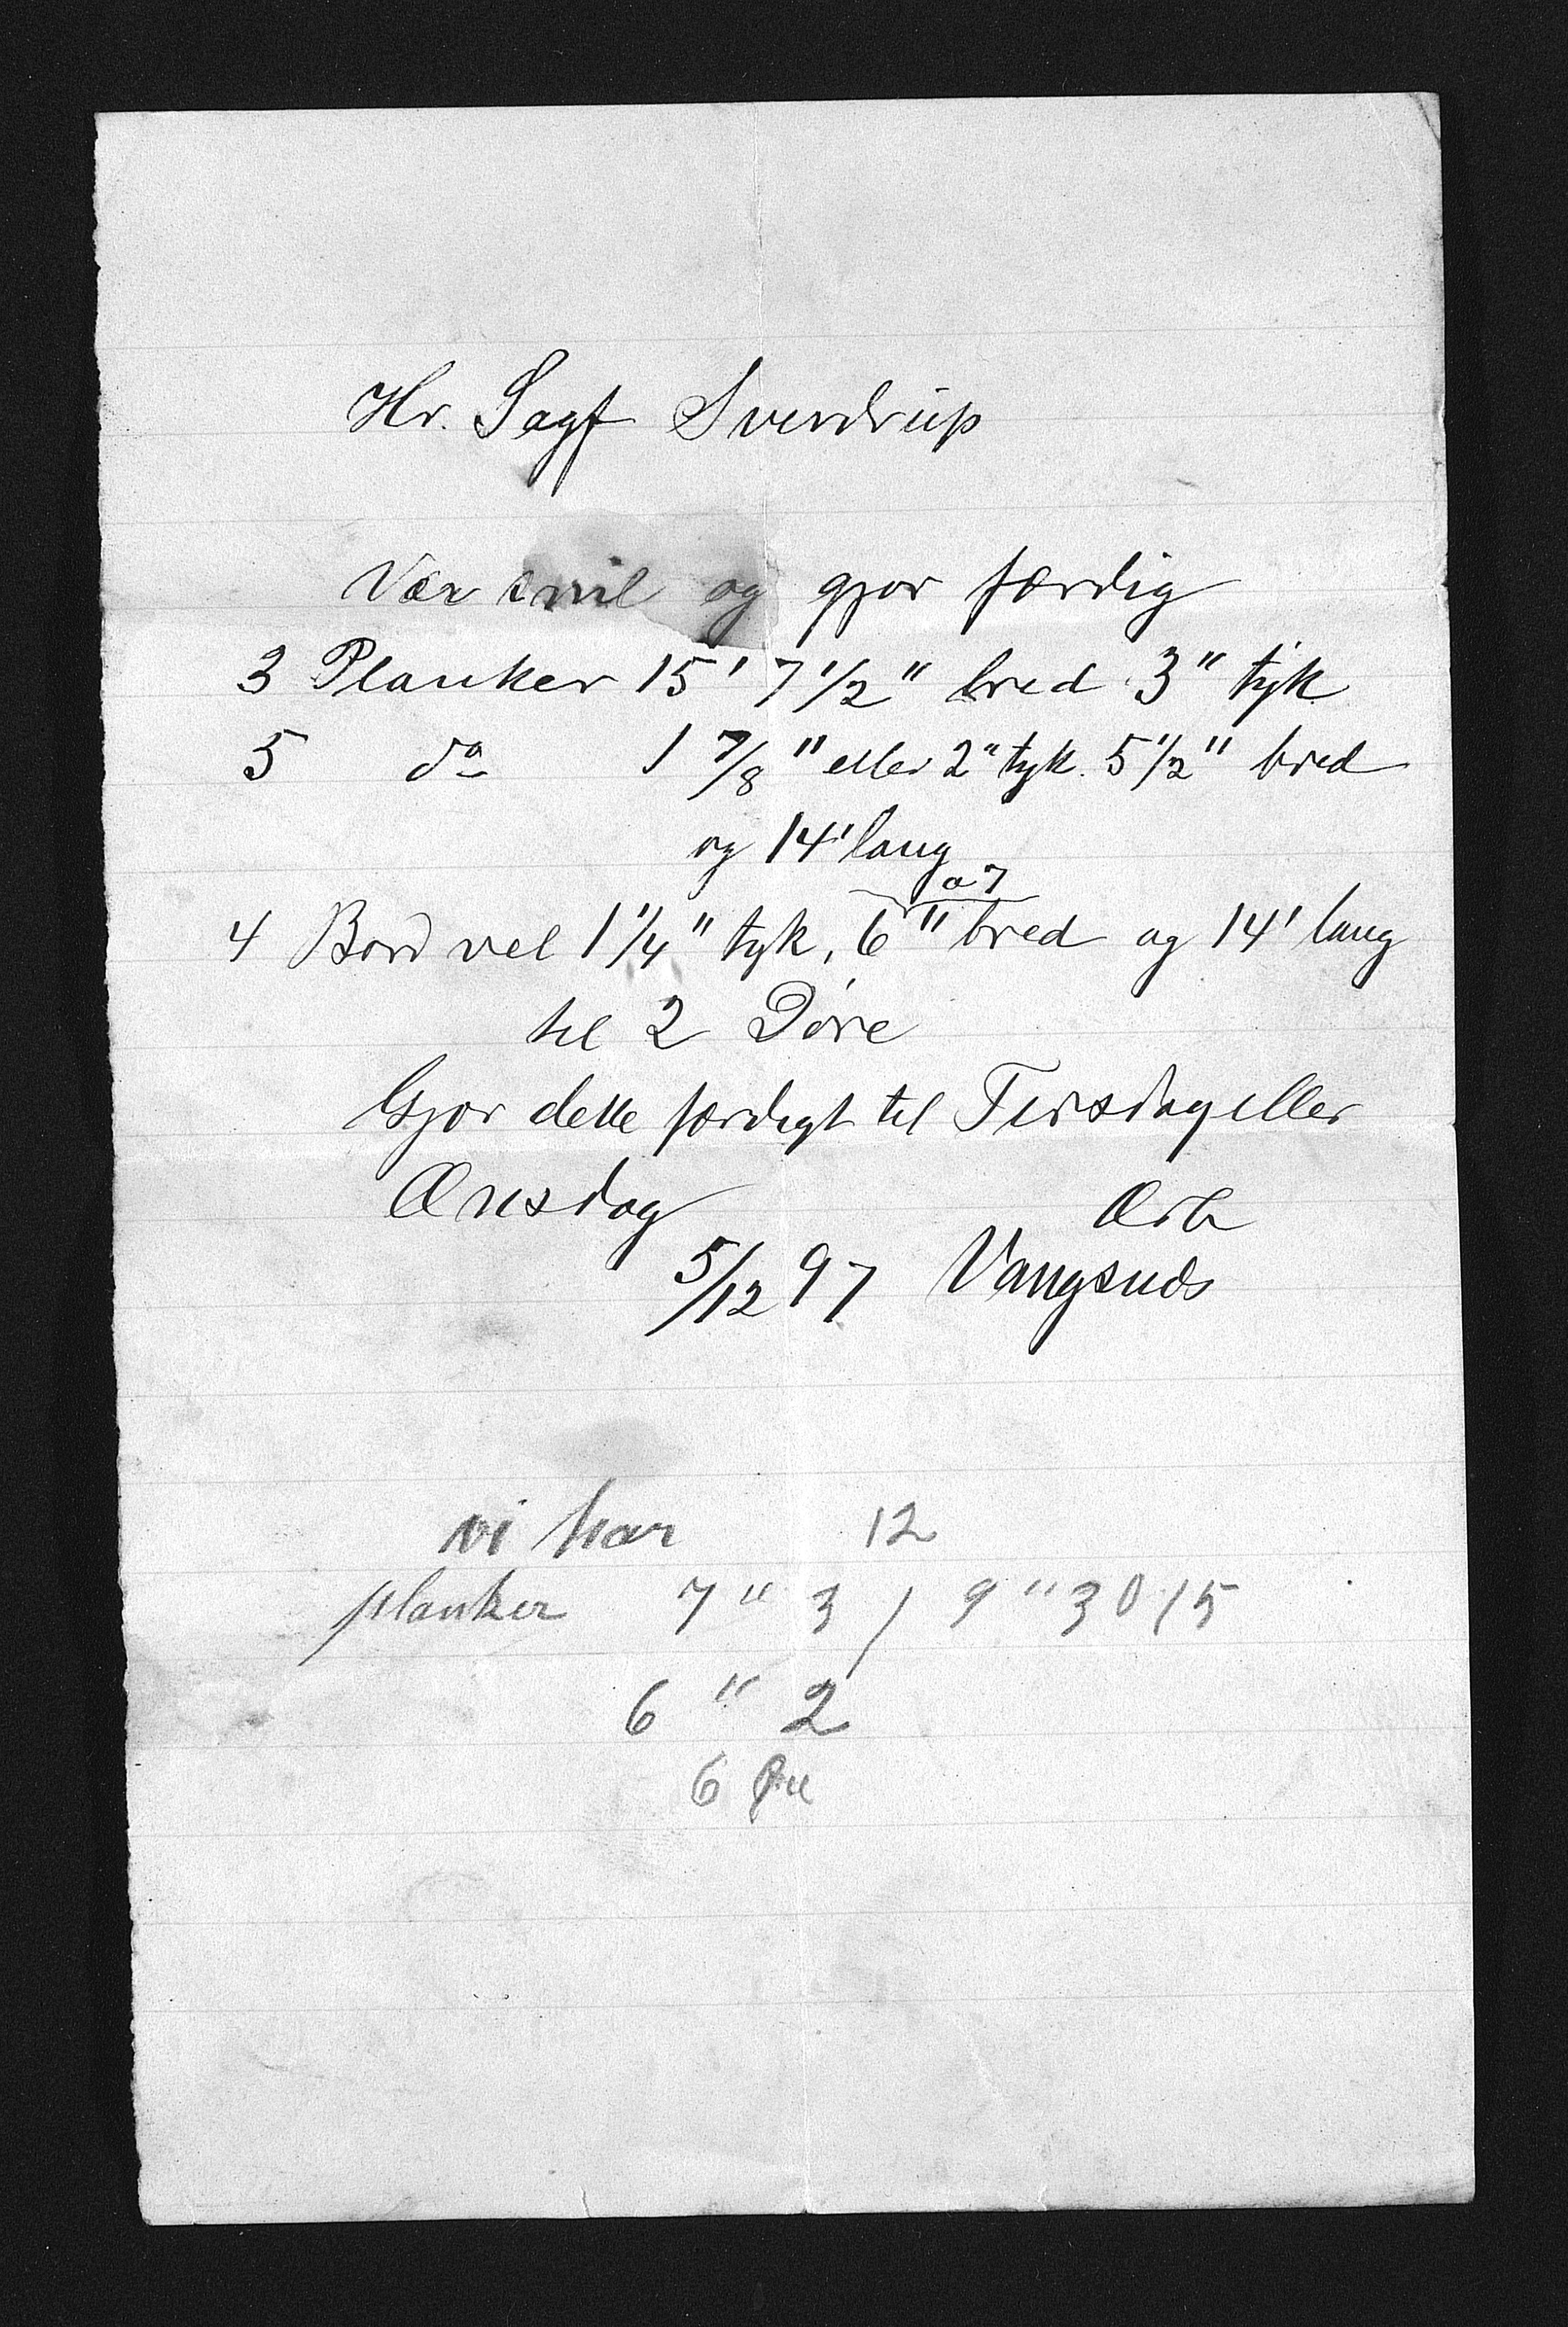 Hr. Sagf Sverdrup
Vær snil og gjør færdig
3 Planker 15' 7 1/2" bred 3" tyk
5 do 1 7/8" eller 2" tyk. 5 1/2" bred
og 14' lang
a 7
4 Bord vel 1 1/4" tyk, 6" bred og 14' lang
til 2 Døre
Gjør dette færdigt til Tirsdag eller
Onsdag Ærb
5/12 97 Vangsnds
vi har 12
planker 7" 3 / 9" 3 0 15
6" 2
6